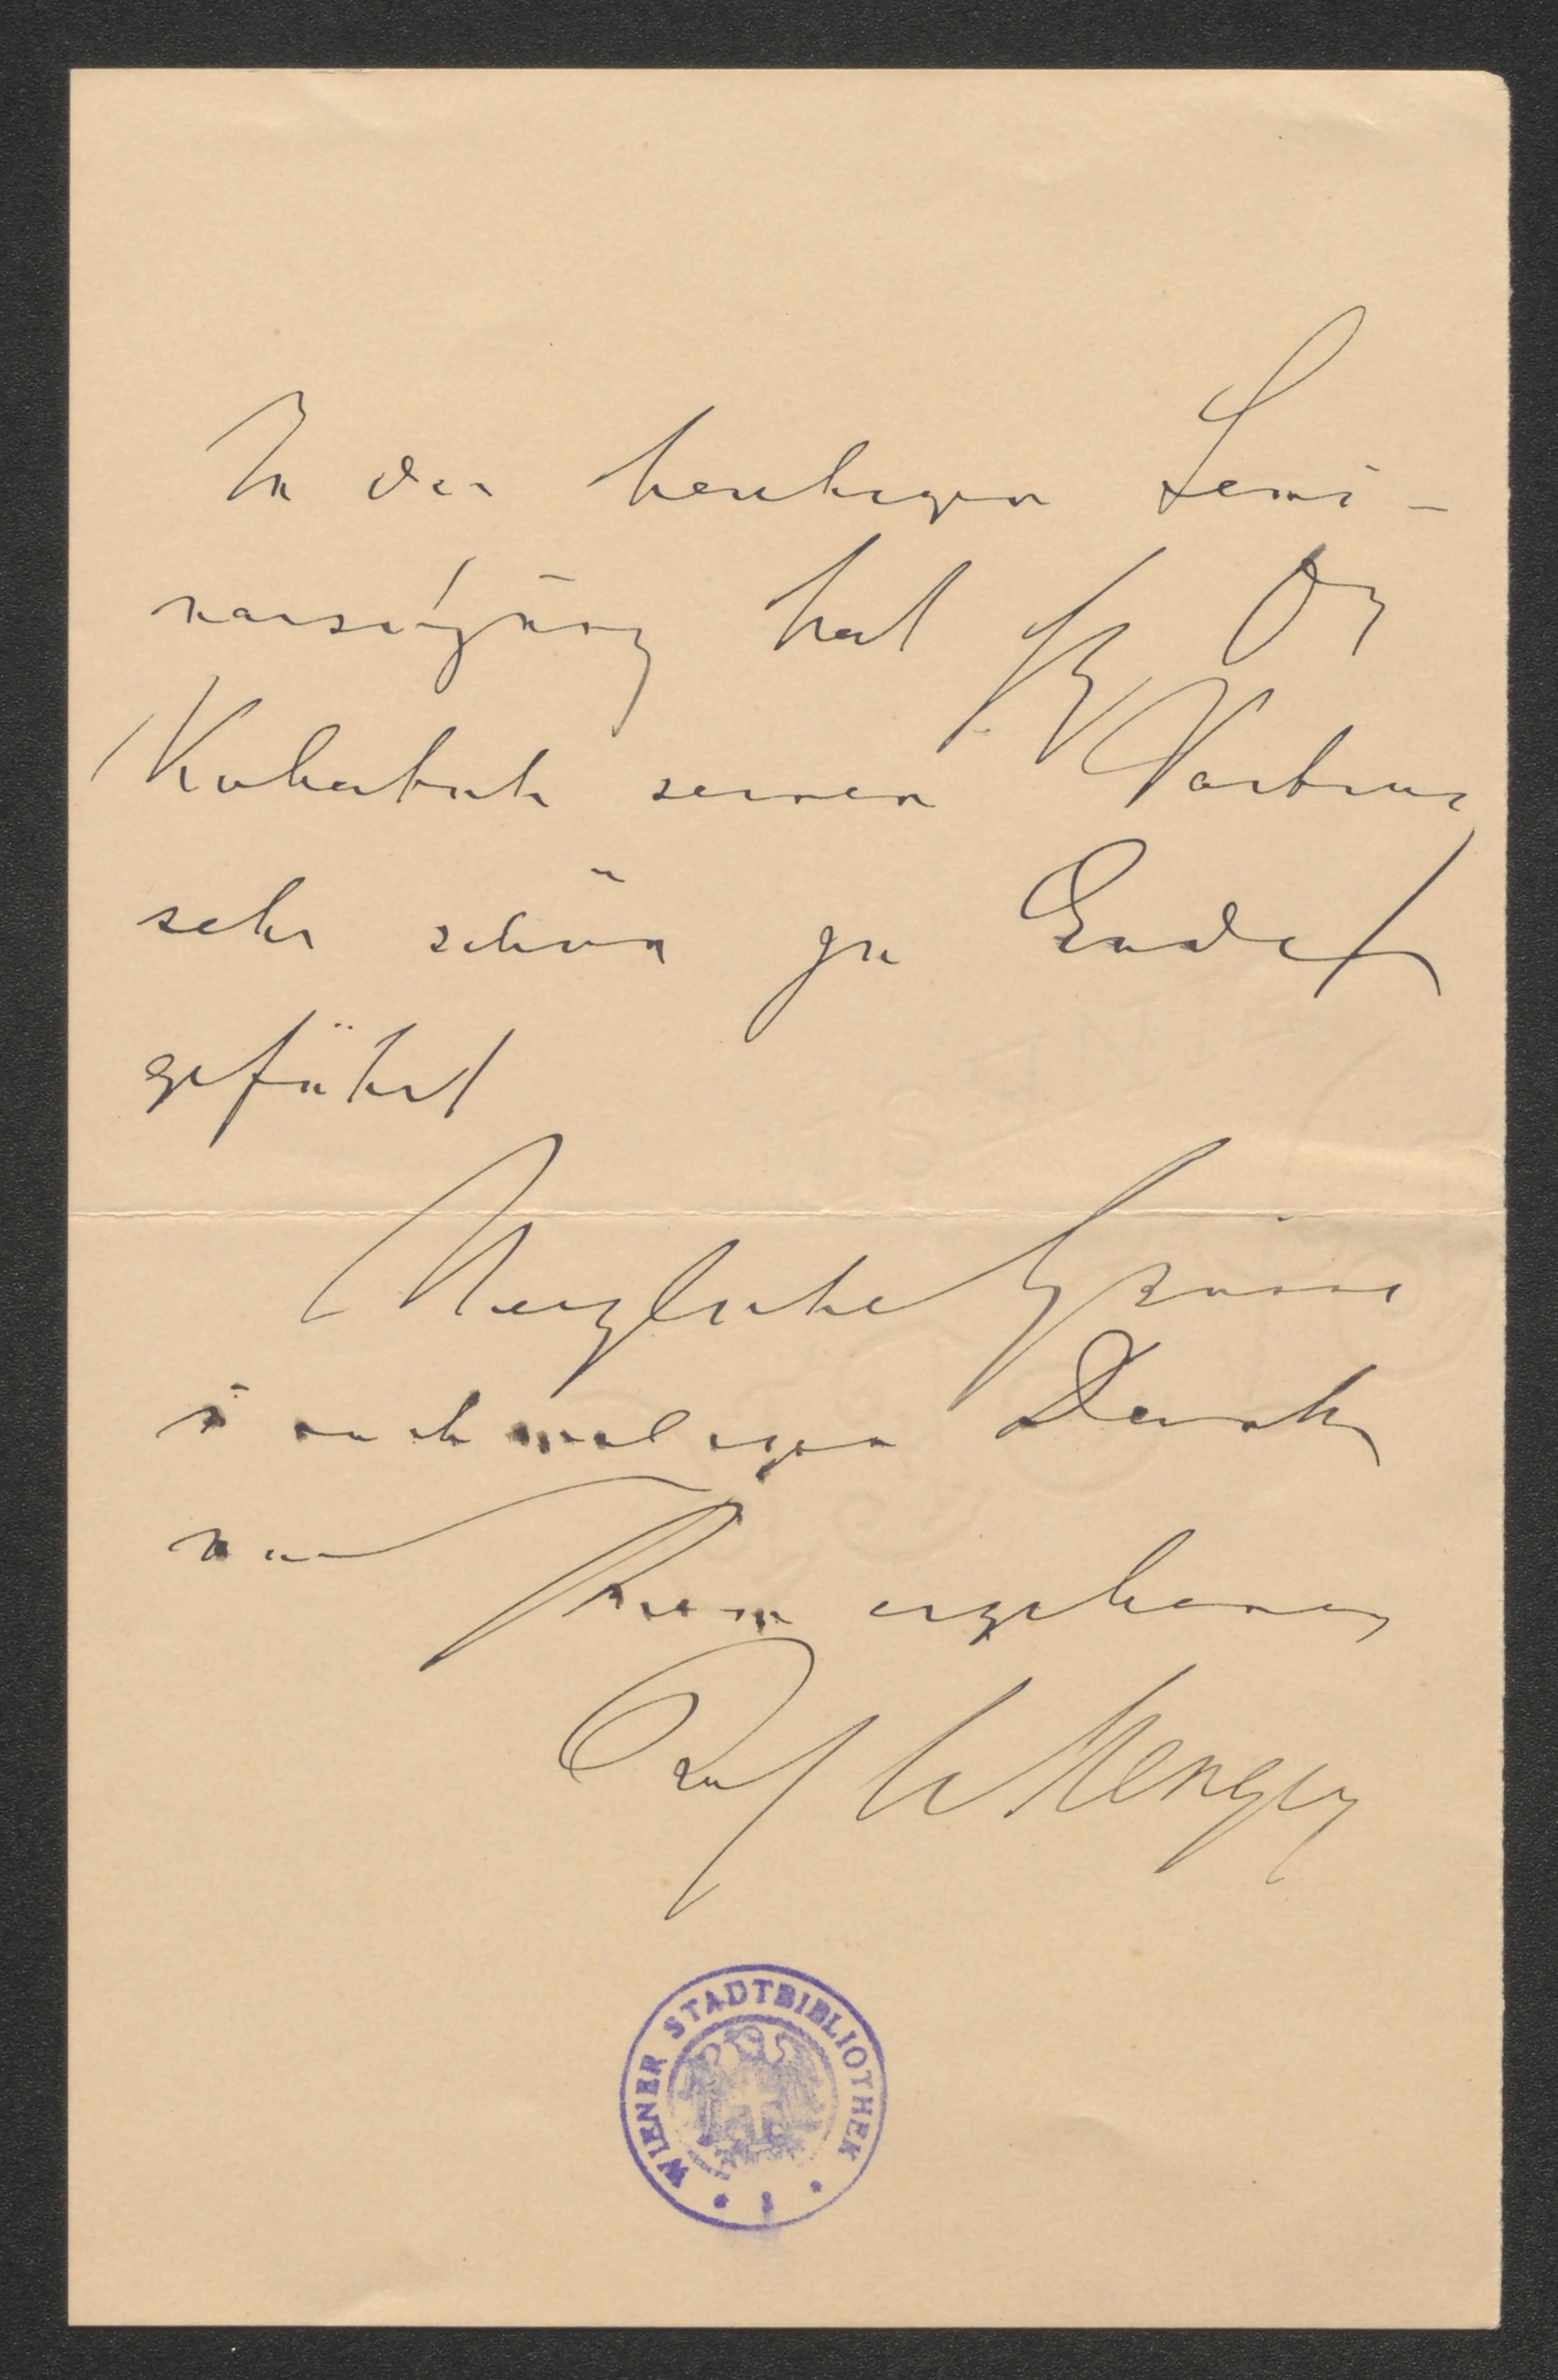 In der heutigen Semi-
narsitzung hat H Dr
Kubatsch seinen Vortrag
sehr schön zu Ende
geführt
Herzliche Grüsse
u nochmaligen Dank
von
Ihrem ergebenen
Prof C Menger
WIENER STADTBIBLIOTHEK